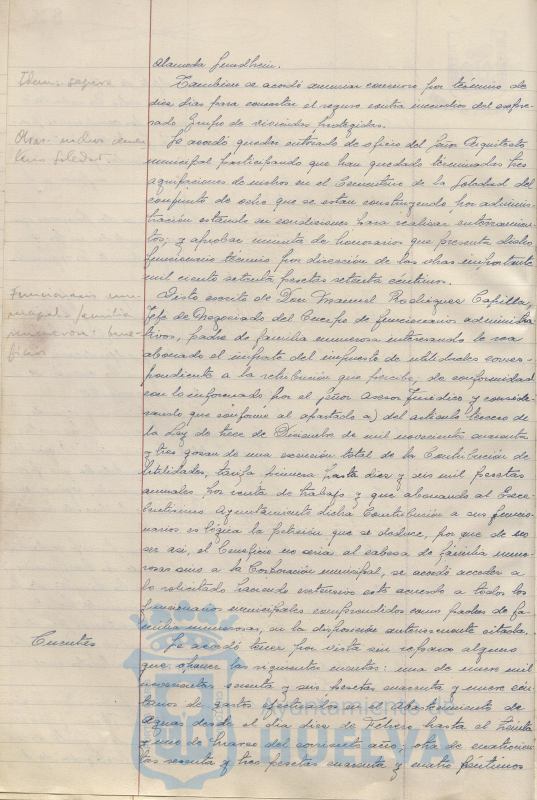 Alameda Sundheim.
Idem: seguro
Tambien se acordó anunciar concurso por término de
diez dias para concertar el seguro contra incendios del expre-
sado Grupo de viviendas protegidas.
Obras: nichos cemen
terio Soledad.
Se acordó quedar enterado de oficio del Señor Arquitecto
municipal participando que han quedado terminadas tres
agrupaciones de nichos en el Cementerio de la Soledad del
conjunto de ocho que se estan construyendo por adminis-
tración estando en condiciones para realizar enterramien-
tos, y aprobar minuta de honorarios que presenta dicho
funcionario técnico por dirección de las obras importante
mil ciento setenta pesetas setenta céntimos.
Funcionarios mu-
nicipal: familia
numerosa: bene-
ficios
Visto escrito de Don Manuel Rodriguez Capilla,
Jefe de Negociado del Cuerpo de funcionarios administra
tivos, padre de familia numerosa interesando le sea
abonado el importe del impuesto de utilidades corres-
pondiente a la retribución que percibe, de conformidad
con lo informado por el Señor Asesor Juridico y conside-
rando que conforme al apartado a) del articulo tercero de
la Ley de trece de Diciembre de mil novecientos cuarenta
y tres gozan de una exención total de la Contribución de
Utilidades, tarifa primera hasta diez y seis mil pesetas
anuales por renta de trabajo y que abonando el Exce-
lentisimo Ayuntamiento dicha Contribución a sus funcio-
narios es lógica la petición que se deduce, por que de no
ser asi, el beneficio no seria al cabeza de familia nume-
rosa sino a la Corporación municipal, se acordó acceder a
lo solicitado haciendo extensivo este acuerdo a todos los
funcionarios municipales comprendidos como padres de fa-
milia numerosas, en la disposición anteriormente citada.
Cuentas
Se acordó tener por vista sin reparo alguno
que oponer las siguientes cuentas: una de nueve mil
novecientas sesenta y seis pesetas cuarenta y nueve cén-
timos de gastos efectuados en el Abastecimiento de
Aguas desde el dia diez de Febrero hasta el treinta
y uno de Marzo del corriente año; otra de cuatrocien
tas sesenta y tres pesetas cuarenta y cuatro céntimos
Ayuntamiento de
HUELVA